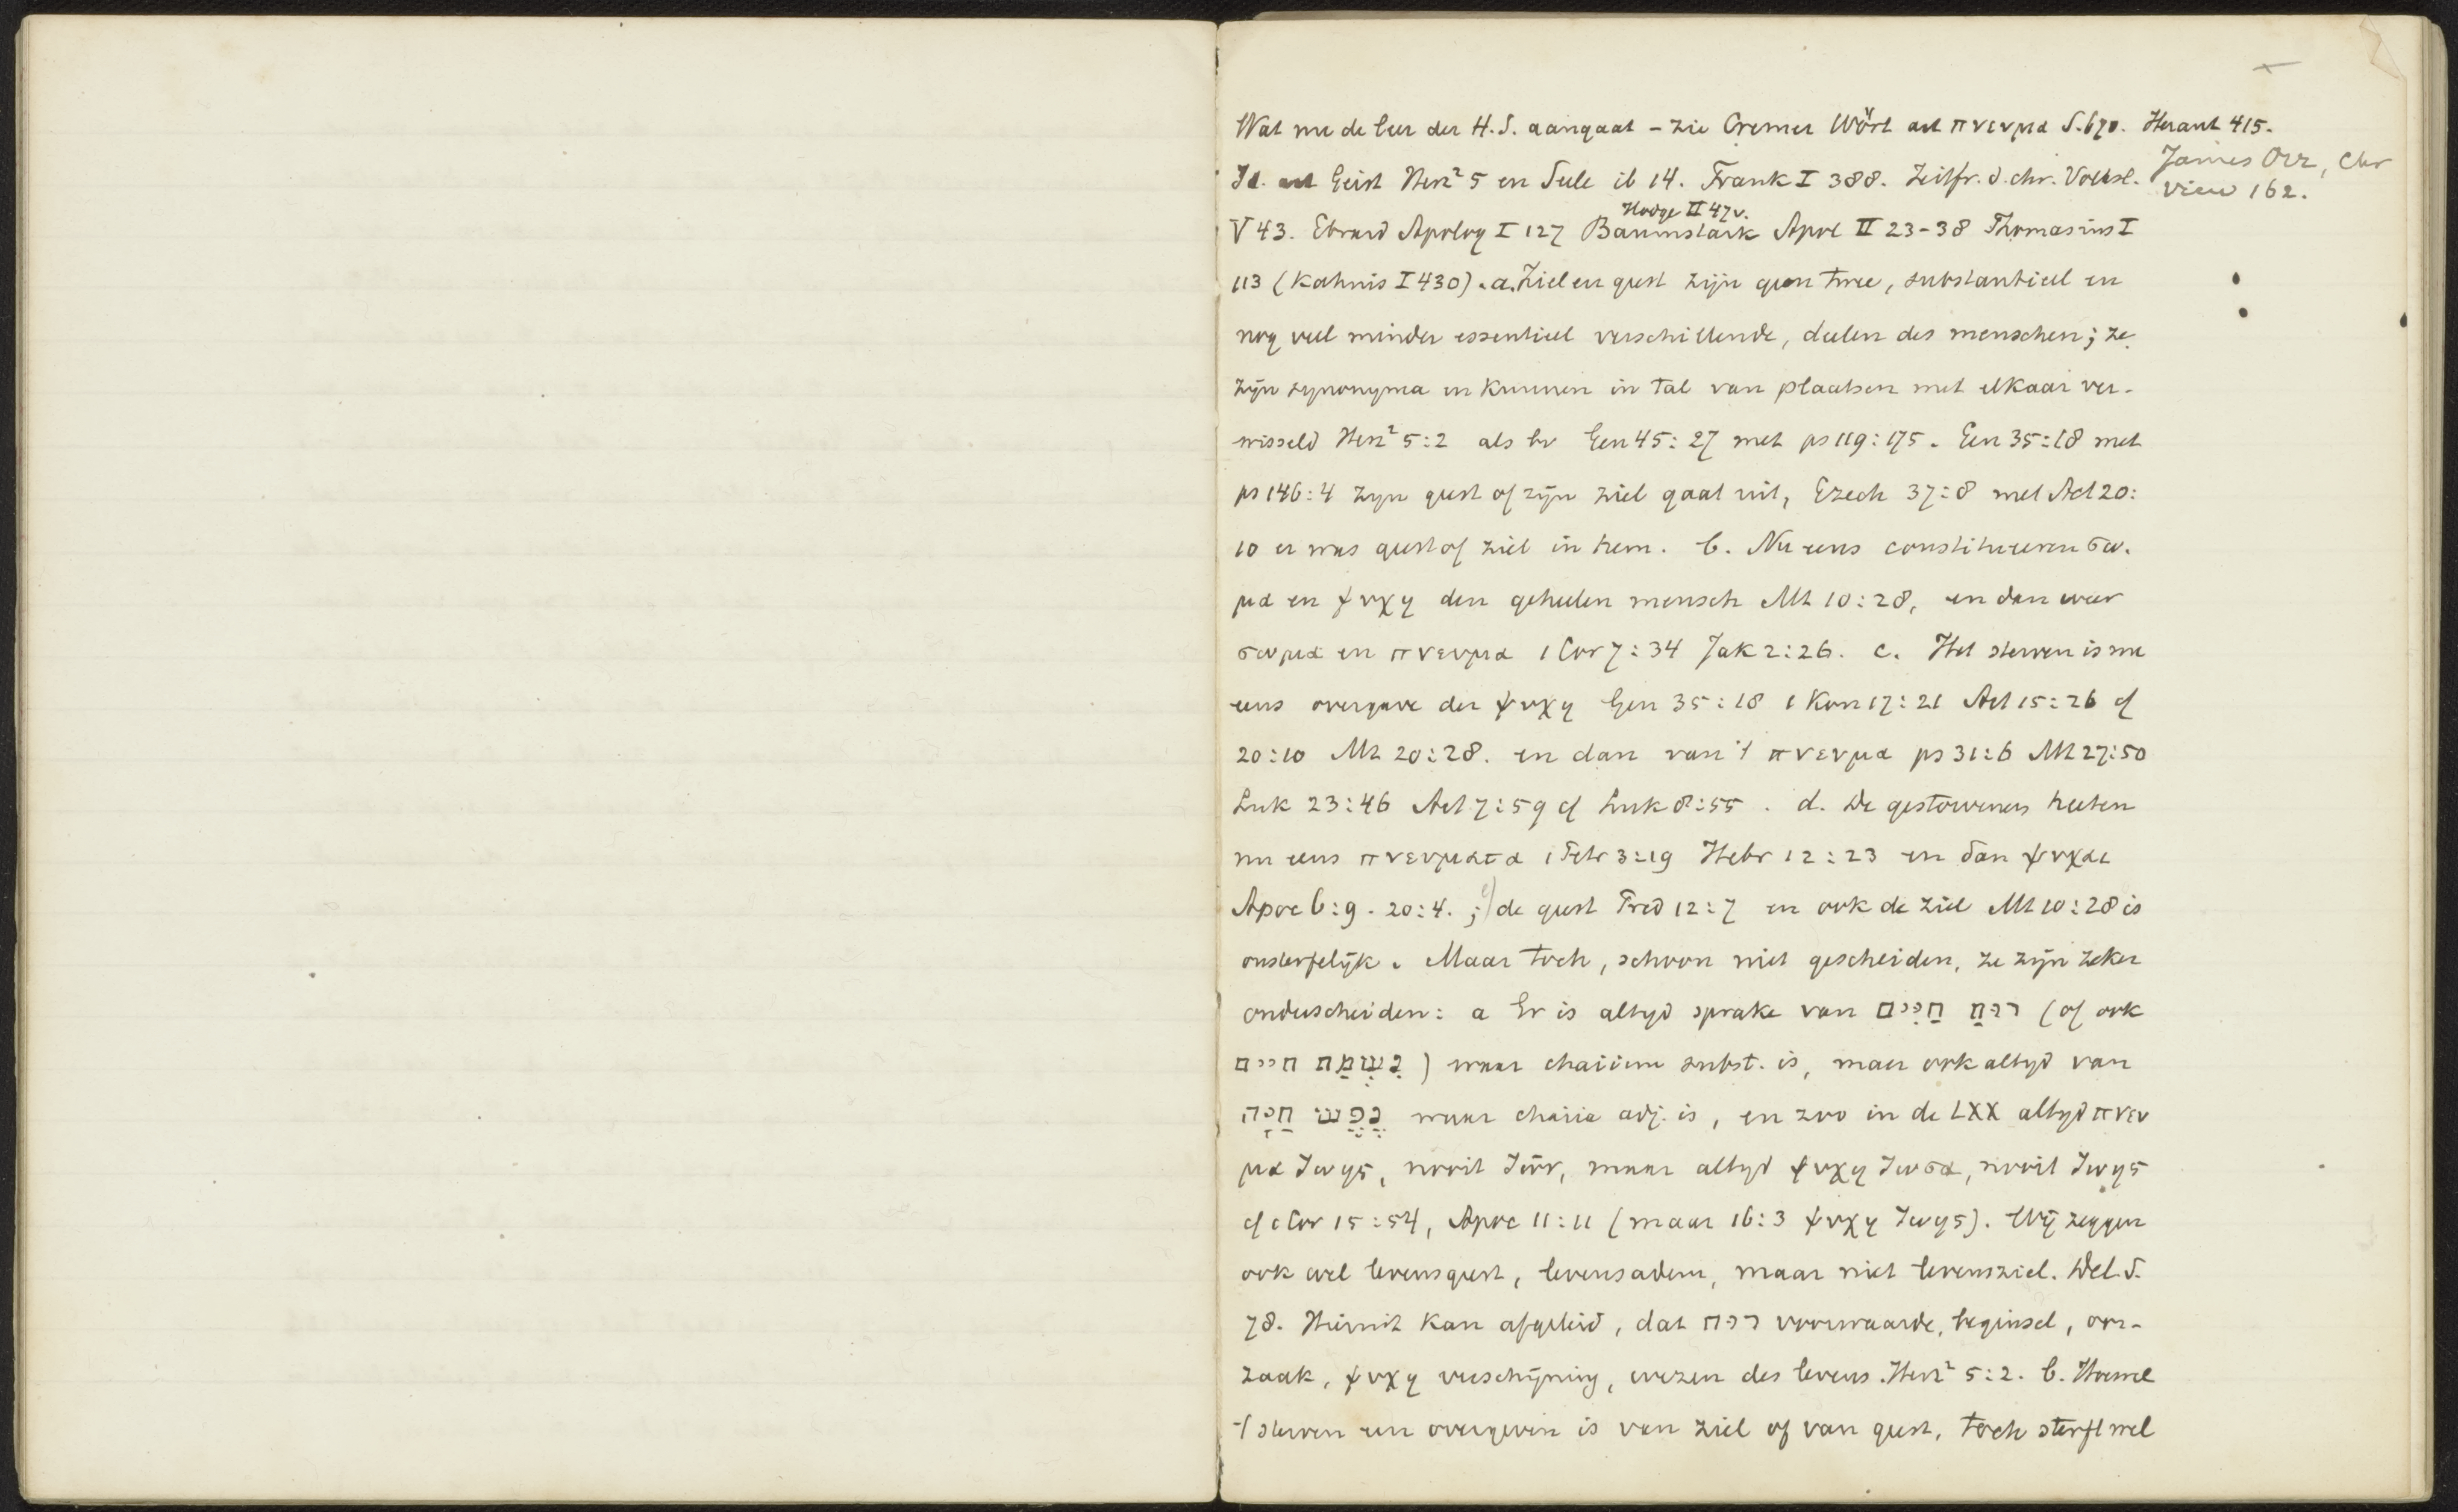 Wat nu de leer der H.S. aangaat – zie Cremer Wört art πνευμα S. 670. Heraut 415.
James Orr, Chr
view 162.
Id. art Geist Herz² 5 en Seele ib 14. Frank I 388. Zeitfr. d. chr. Volksl.
Hodge II 47v.
V 43. Ebrard Apolog I 127 Baumstark Apol II 23-38 Thomasius I
113 (Kahnis I 430). a. Ziel en geest zijn geen twee, substantieel en
nog veel minder essentieel verschillende, deelen des menschen; ze
zijn synonyma en kunnen in tal van plaatsen met elkaar ver-
wisseld Herz² 5:2 als bv Gen 45:27 met ps 119:175. Gen 35:18 met
ps 146:4 zijn geest of zijn ziel gaat uit, Ezech 37:8 met Act 20:
10 er was geest of ziel in hem. b. Nu eens constitueren σω-
μα en ψυχη den geheelen mensch Mt 10:28, en dan weer
σωμα en πνευμα 1 Cor 7:34 Jak 2:26. c. Het sterven is nu
eens overgave der ψυχη Gen 35:18 1 Kon 17:21 Act 15:26 cf
20:10 Mt 20:28. en dan van 't πνευμα ps 31:6 Mt 27:50
Luk 23:46 Act 7:59 cf Luk 8:55. d. De gestorvenen heeten
nu eens πνευματα 1 Petr 3:19 Hebr 12:23 en dan ψυχαι
Apoc 6:9. 20:4. ; e) de geest Pred 12:7 en ook de ziel Mt 10:28 is
onsterfelijk. Maar toch, schoon niet gescheiden, ze zijn zeker
onderscheiden: a Er is altijd sprake van רוּחַ חַיִּים (of ook
נִשְׁמַת חיים) waar chaiim subst. is, maar ook altijd van
נֶפֶשׁ חַיָּה waar chaiia adj. is, en zoo in de LXX altijd πνευ
μα ζωης, nooit ζων, maar altijd ψυχη ζωσα, nooit ζωης
cf 1 Cor 15:54, Apoc 11:11 (maar 16:3 ψυχη ζωης). Wij zeggen
ook wel levensgeest, levensadem, maar niet levensziel. Del. S.
78. Hieruit kan afgeleid, dat רוּח voorwaarde, beginsel, oor-
zaak, ψυχη verschijning, wezen des levens. Herz² 5:2. b. Hoewel
't sterven een overgeven is van ziel of van geest, toch sterft wel